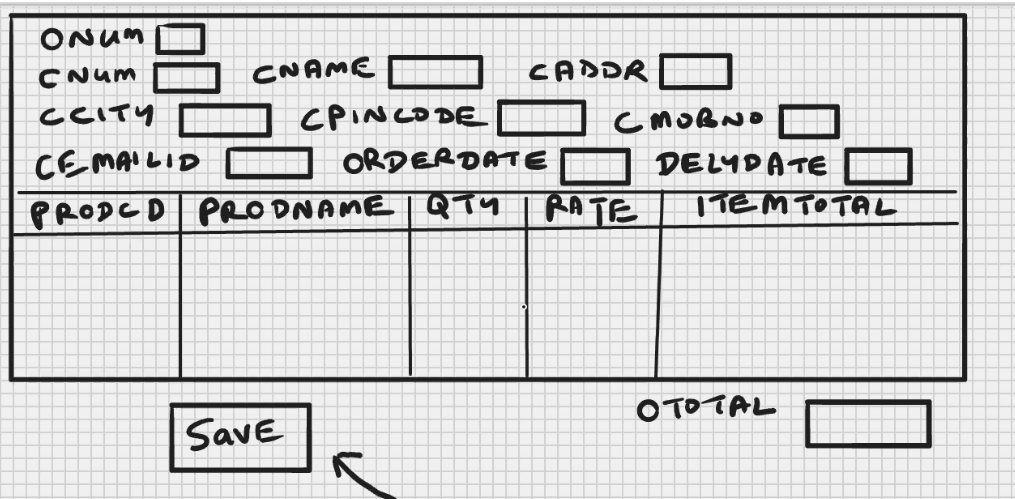 ONUM
CNUM CNAME CADDR
CCITY CPINCODE CMOBNO
CEMAILID ORDERDATE DELYDATE
PRODCD PRODNAME QTY RATE ITEMTOTAL
OTOTAL
SAVE